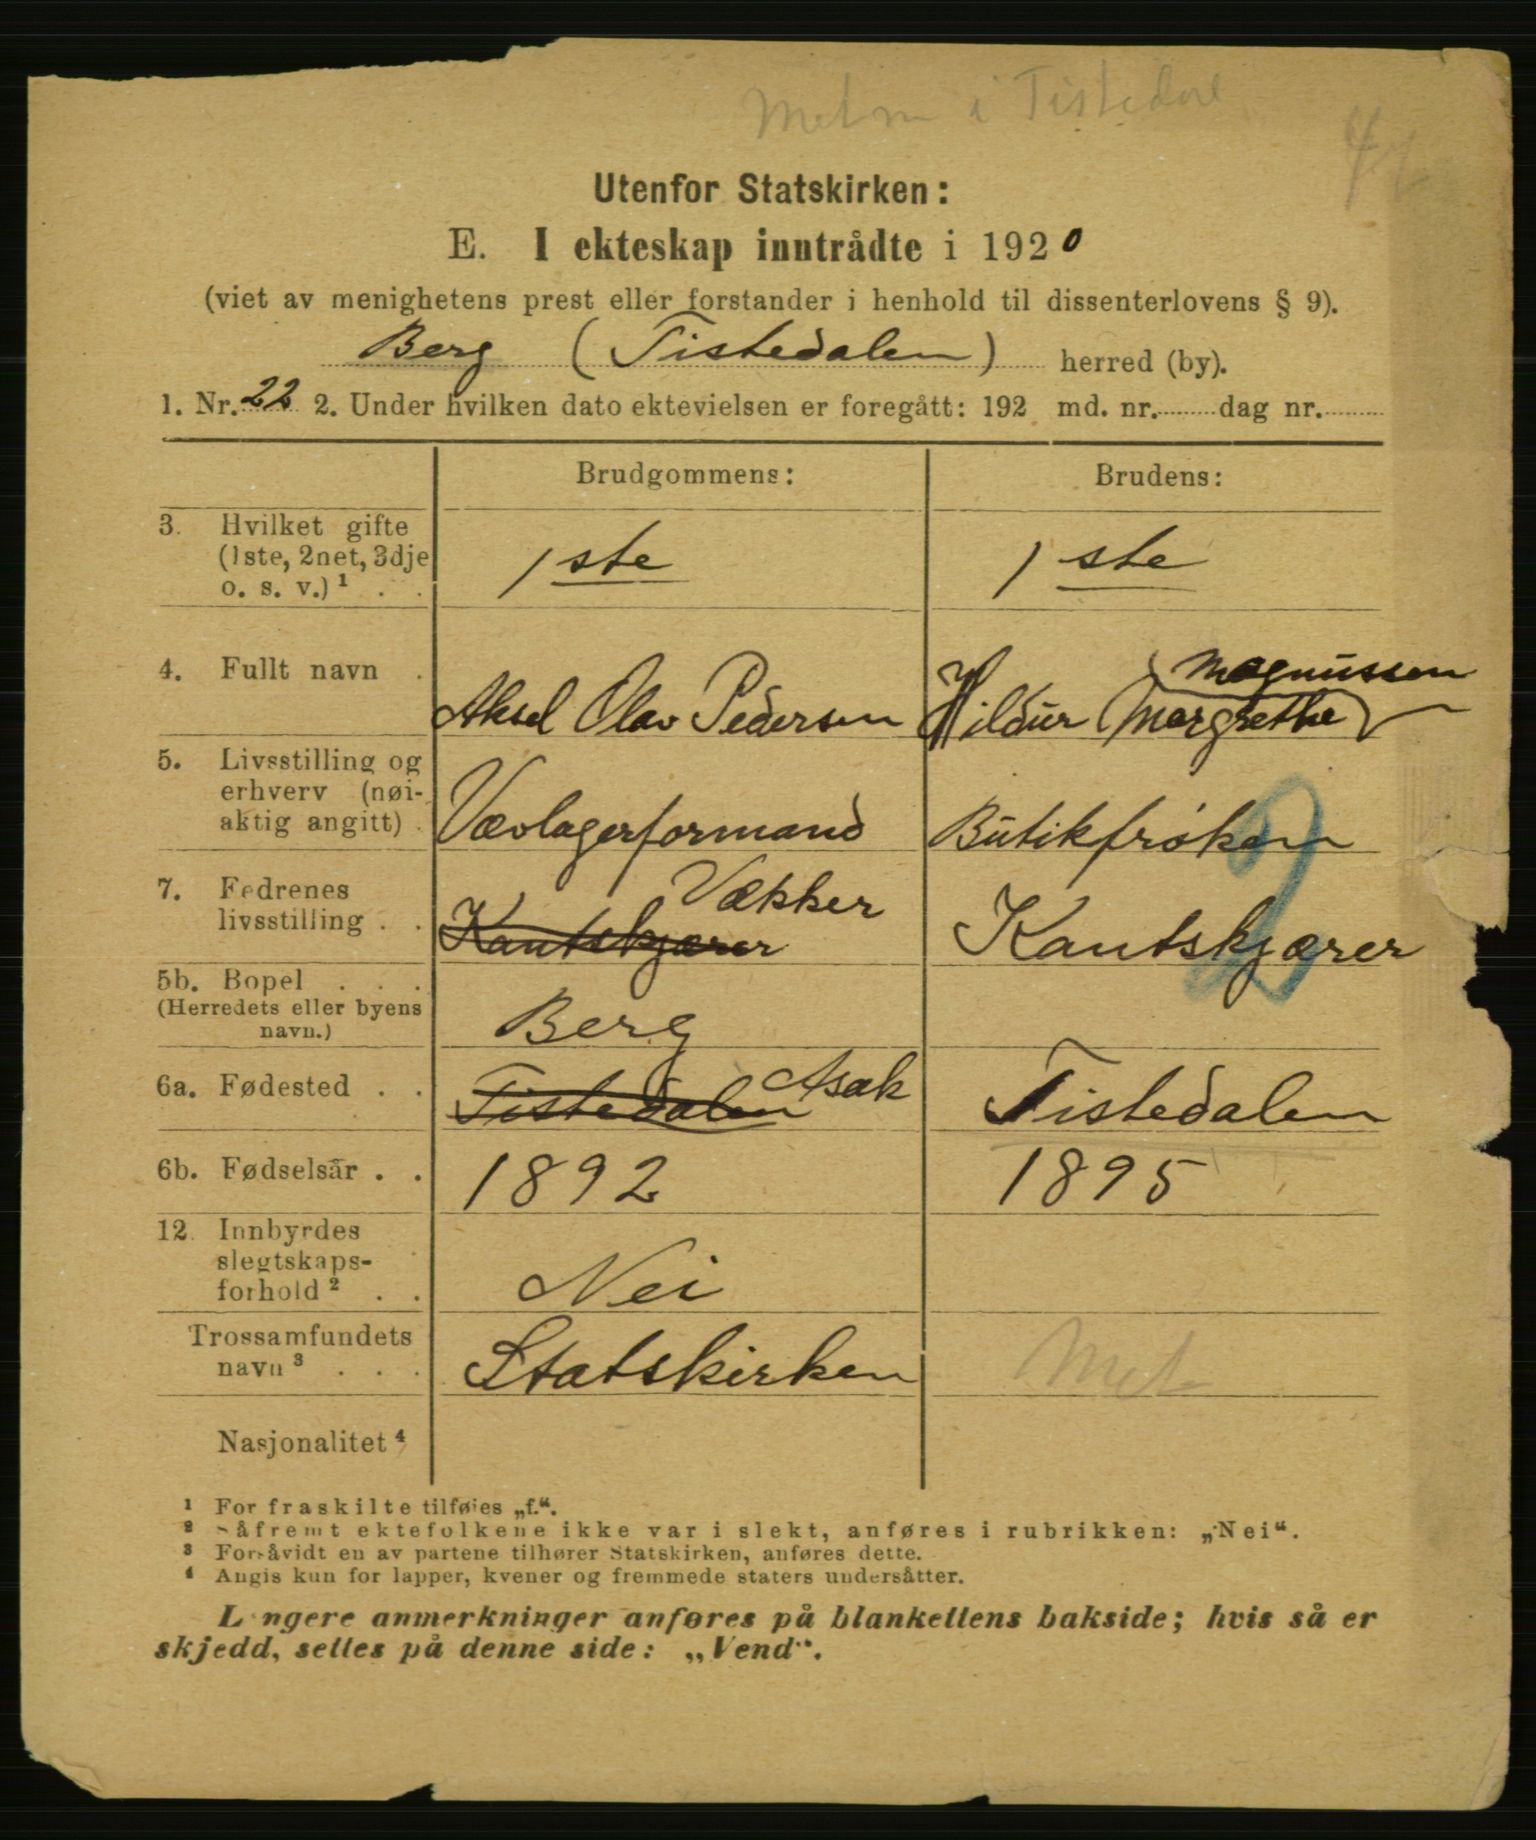 i Tistedal
Utenfor Statskirken:
E. I ekteskap inntrådte i 1920
(viet av menighetens prest eller forstander i henhold til dissenterlovens § 9).
Berg (Tistedalen) herred (by).
1. Nr. 22 2. Under hvilken dato ektevielsen er foregått: 192 md. nr. dag nr.
Brudgommens: Brudens:
3. Hvilket gifte
(1ste, 2net, 3dje
o. s. v.) ¹ . .
1ste 1ste
4. Fullt navn .
Aksel Olav Pedersen
Magnussen
Hildur Margrethe
5. Livsstilling og
erhverv (nøi-
aktig angitt) .
Vævlagerformand Butikfrøken
7. Fedrenes
livsstilling . .
Vækker
Kantskjærer Kantskjærer
5b. Bopel . . .
(Herredets eller byens
navn.)
Berg
6a. Fødested . .
Tistedalen Asak Tistedalen
6b. Fødselsår . .
1892 1895
12. Innbyrdes
slegtskaps-
forhold ² . .
Nei
Trossamfundets
navn ³ . . .
Statskirken Met
Nasjonalitet ⁴
¹ For fraskilte tilføies „f.“.
² Såfremt ektefolkene ikke var i slekt, anføres i rubrikken: „Nei“.
³ Forsåvidt en av partene tilhører Statskirken, anføres dette.
⁴ Angis kun for lapper, kvener og fremmede staters undersåtter.
Lengere anmerkninger anføres på blankettens bakside; hvis så er
skjedd, settes på denne side: „Vend“.